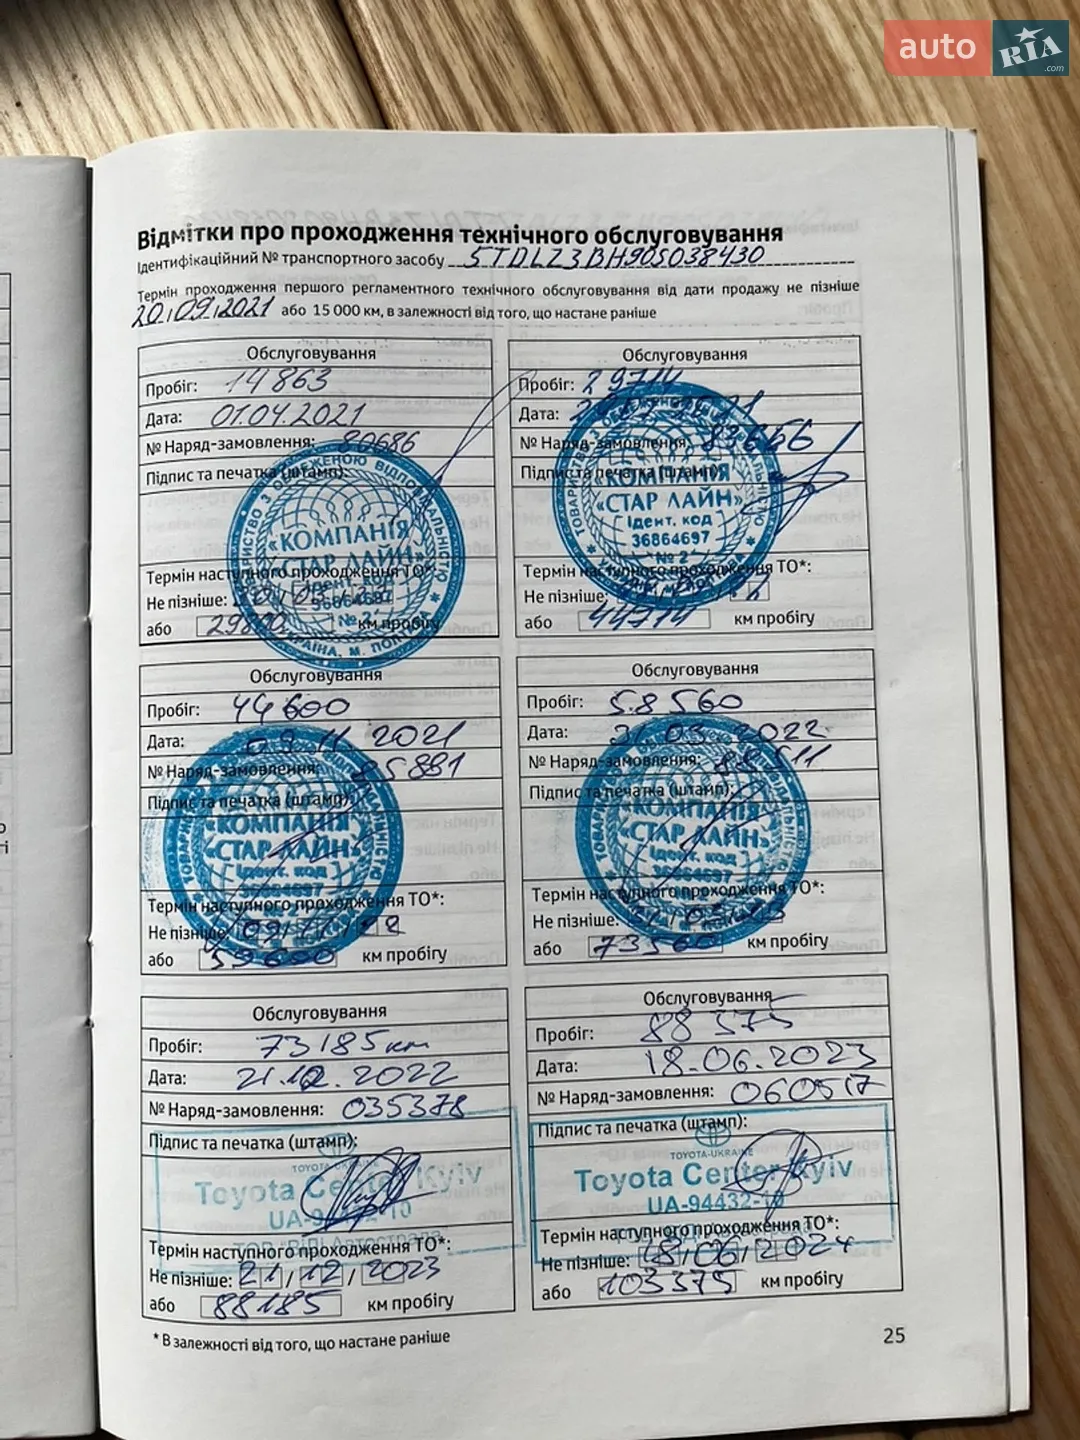 auto RIA.com
Відмітки про проходження технічного обслуговування
Ідентифікаційний № транспортного засобу 5TDLZ3BH90S038430
Термін проходження першого регламентного технічного обслуговування від дати продажу не пізніше
20.09.2021 або 15 000 км, в залежності від того, що настане раніше
Обслуговування
Пробіг: 14863
Дата: 01.04.2021
№ Наряд-замовлення: 80686
Підпис та печатка (штамп):
ТОВАРИСТВО З ОБМЕЖЕНОЮ ВІДПОВІДАЛЬНІСТЮ
«КОМПАНІЯ
«СТАР ЛАЙН»
Ідент. код
36864697
№ 2
УКРАЇНА, М. ПОЛТАВА
Термін наступного проходження ТО*:
Не пізніше:
або км пробігу
Обслуговування
Пробіг: 29714
Дата:
№ Наряд-замовлення: 83656
Підпис та печатка (штамп):
«КОМПАНІЯ
«СТАР ЛАЙН»
Ідент. код
36864697
№ 2
Термін наступного проходження ТО*:
Не пізніше:
або 44714 км пробігу
Обслуговування
Пробіг: 44600
Дата: 09.11.2021
№ Наряд-замовлення: 85881
Підпис та печатка (штамп):
«КОМПАНІЯ
«СТАР ЛАЙН»
Ідент. код
36864697
№ 2
Термін наступного проходження ТО*:
Не пізніше: 09/11/22
або 59600 км пробігу
Обслуговування
Пробіг: 58560
Дата: 31.03.2022
№ Наряд-замовлення: 88511
Підпис та печатка (штамп):
«КОМПАНІЯ
«СТАР ЛАЙН»
Ідент. код
36864697
Термін наступного проходження ТО*:
Не пізніше:
або 73560 км пробігу
Обслуговування
Пробіг: 73185 км
Дата: 21.12.2022
№ Наряд-замовлення: 035378
Підпис та печатка (штамп):
TOYOTA-UKRAINE
Toyota Center Kyiv
UA-94432-10
Термін наступного проходження ТО*:
Не пізніше: 21/12/2023
або 88185 км пробігу
Обслуговування
Пробіг: 88 375
Дата: 18.06.2023
№ Наряд-замовлення: 060517
Підпис та печатка (штамп):
TOYOTA-UKRAINE
Toyota Center Kyiv
UA-94432-10
Термін наступного проходження ТО*:
Не пізніше: 18/06/2024
або 103375 км пробігу
* В залежності від того, що настане раніше
25